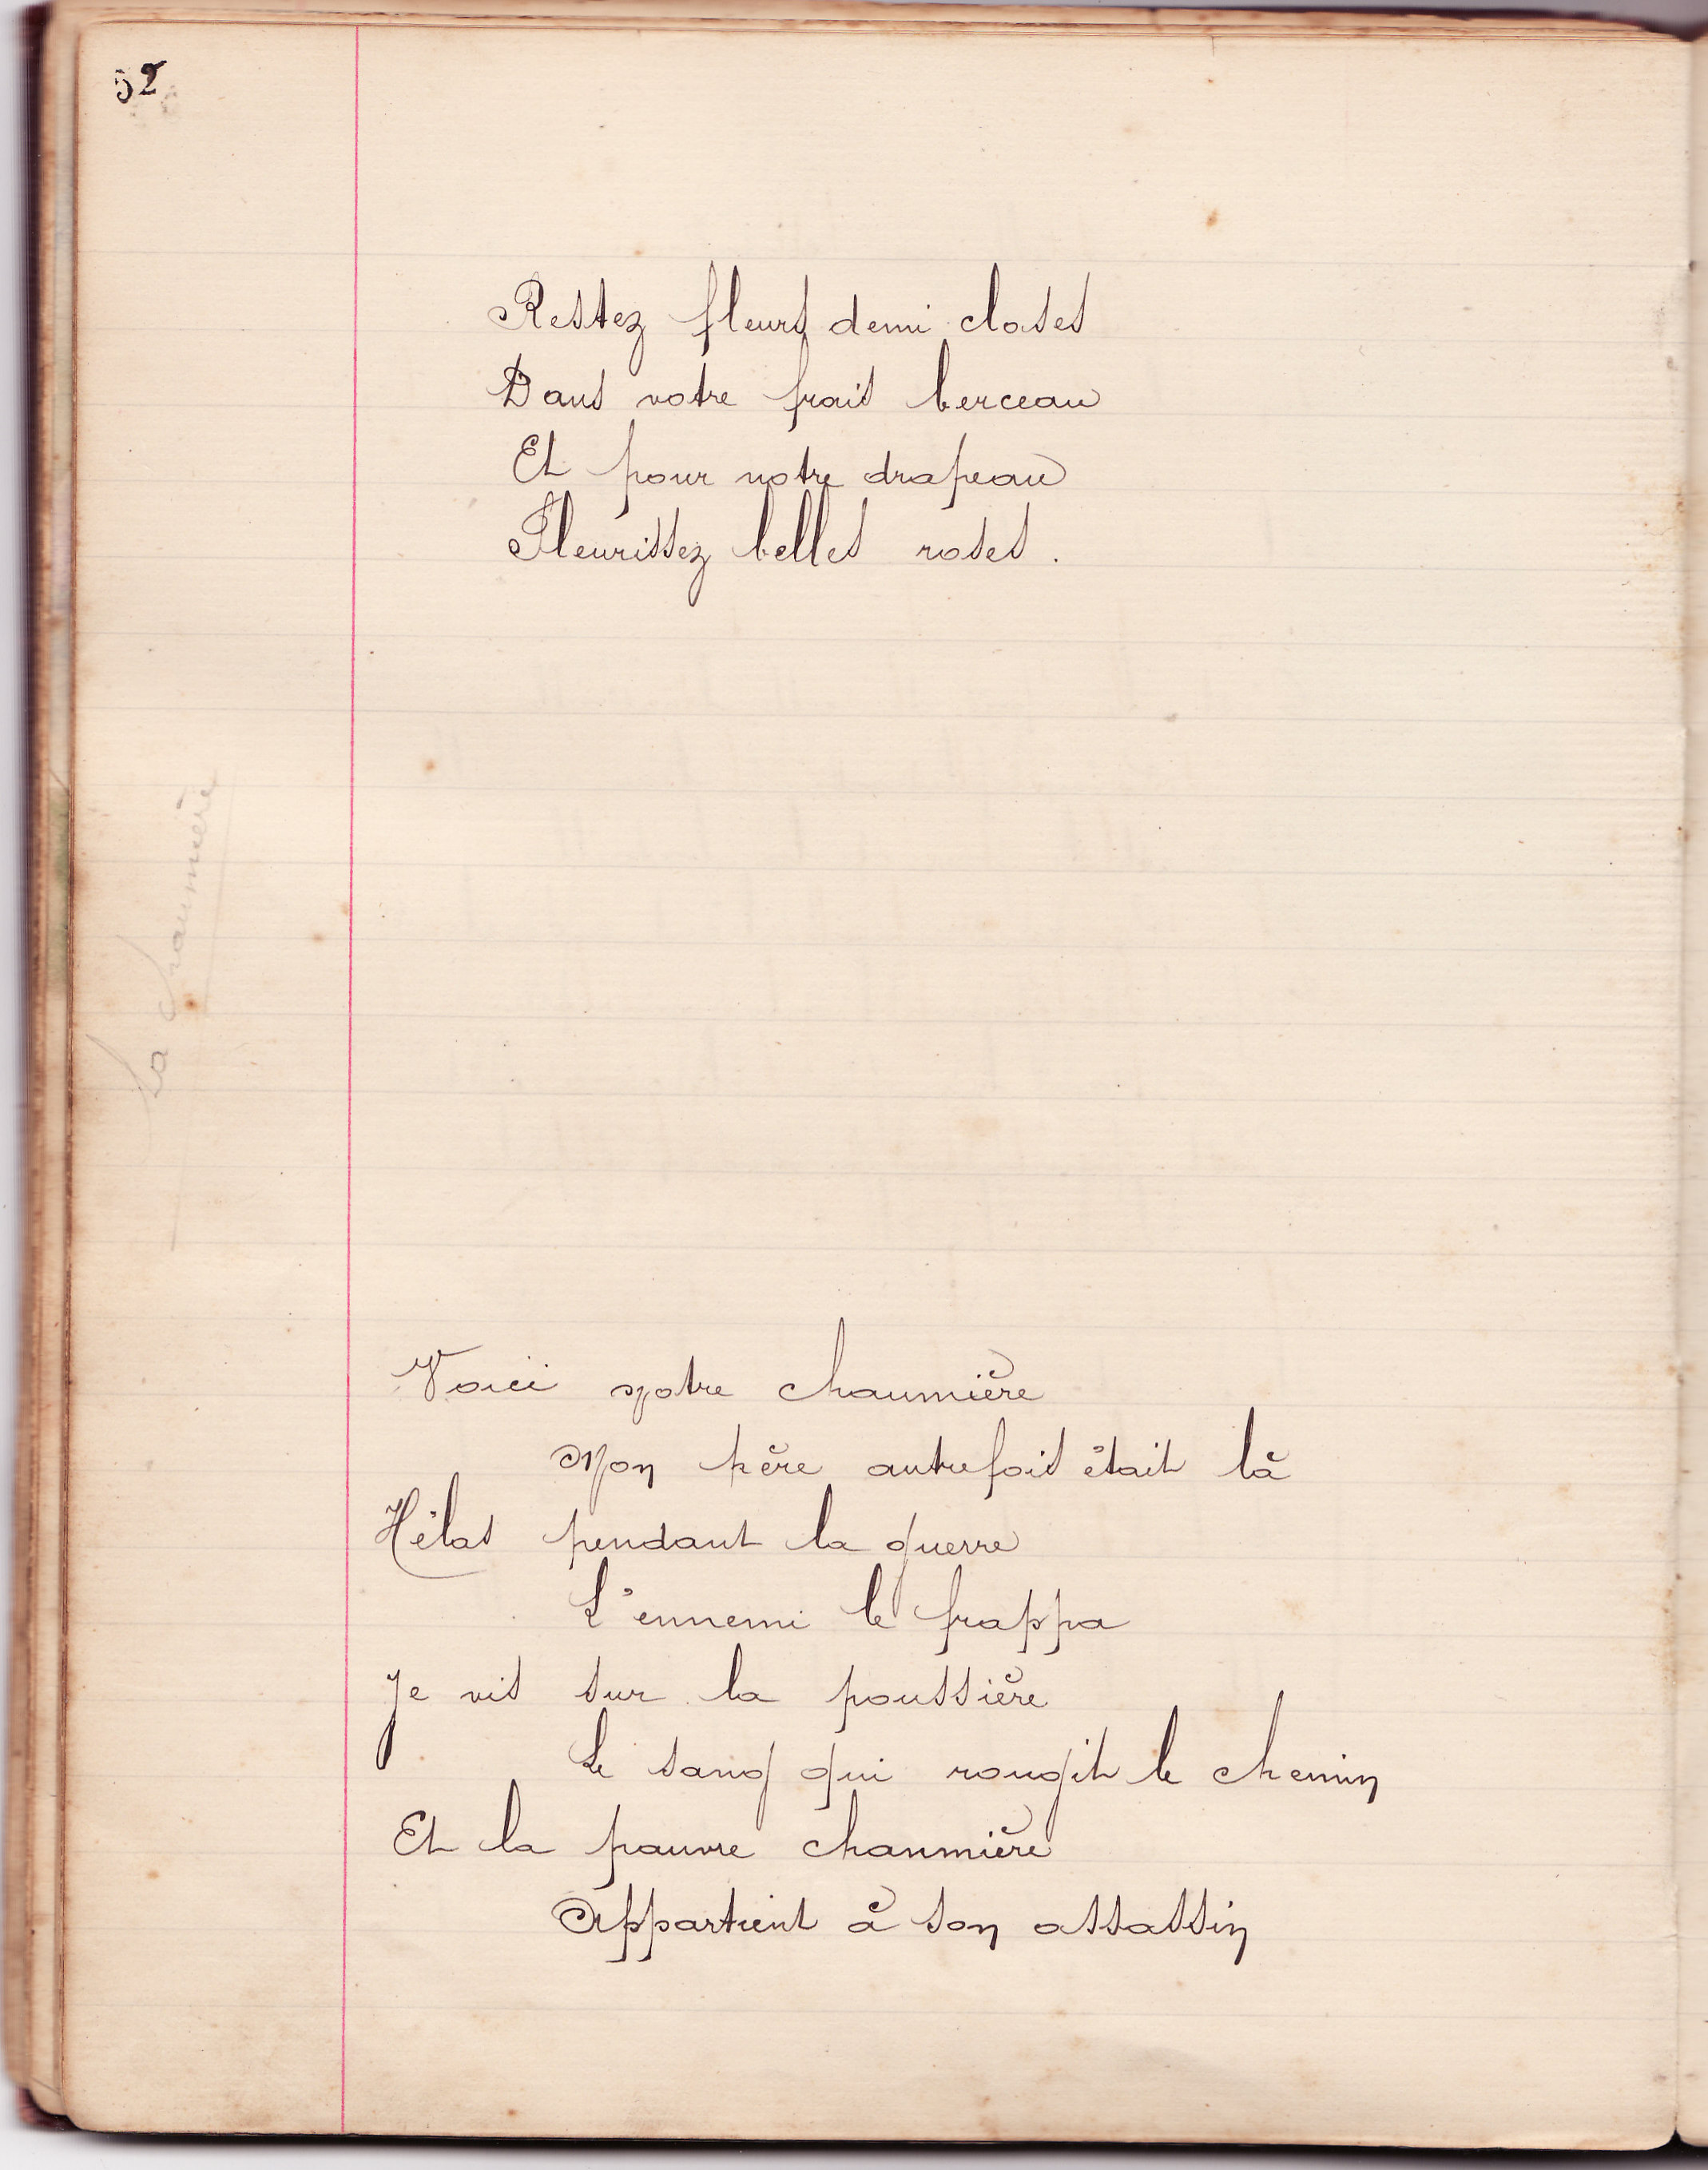 52
Restez fleurs demi closes
Dans votre frais berceau
Et pour notre drapeau
Fleurissez belles roses.
La chaumière
Voici notre chaumière
Mon père autrefois était là
Hélas pendant la guerre
L'ennemi le frappa
Je vis sur la poussière
Le sang qui rougit le chemin
Et la pauvre chaumière
Appartient à son assassin